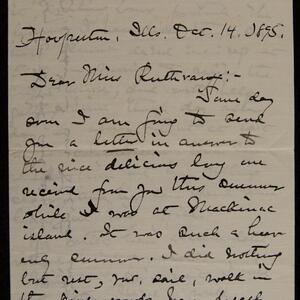 Hoopeston, Ills. Oct. 14, 1895.
Dear Miss Ruthrauff:-
Some day
soon I am going to send
you a letter in answer to
the nice delicious long one
received from you this summer
while I was at Mackinac
island. It was such a heav
enly summer. I did nothing
but rest, row, sail, walk in
the pine woods